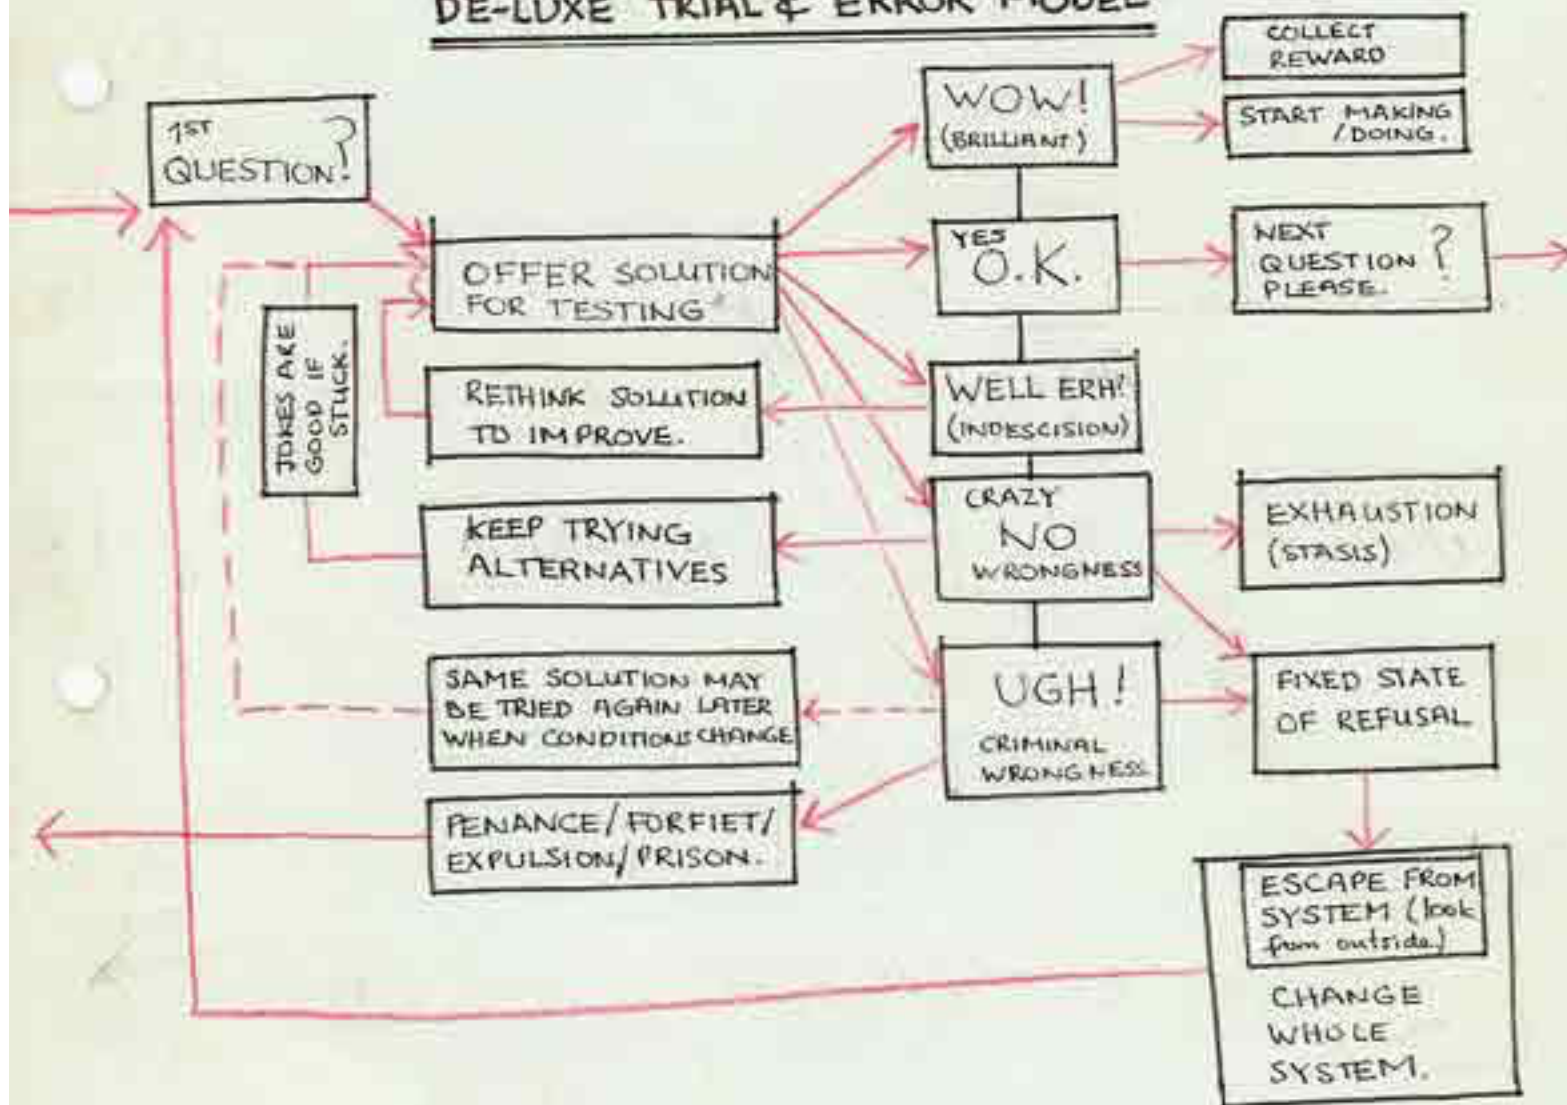 DE-LUXE TRIAL & ERROR MODEL
1ST
QUESTION?
OFFER SOLUTION
FOR TESTING
JOKES ARE
GOOD IF
STUCK.
RETHINK SOLUTION
TO IMPROVE.
KEEP TRYING
ALTERNATIVES
SAME SOLUTION MAY
BE TRIED AGAIN LATER
WHEN CONDITIONS CHANGE
PENANCE/FORFIET/
EXPULSION/PRISON.
WOW!
(BRILLIANT)
YES
O.K.
WELL ERH?
(INDESCISION)
CRAZY
NO
WRONGNESS
UGH!
CRIMINAL
WRONGNESS
COLLECT
REWARD
START MAKING
/DOING.
NEXT
QUESTION ?
PLEASE.
EXHAUSTION
(STASIS)
FIXED STATE
OF REFUSAL
ESCAPE FROM
SYSTEM (look
from outside)
CHANGE
WHOLE
SYSTEM.